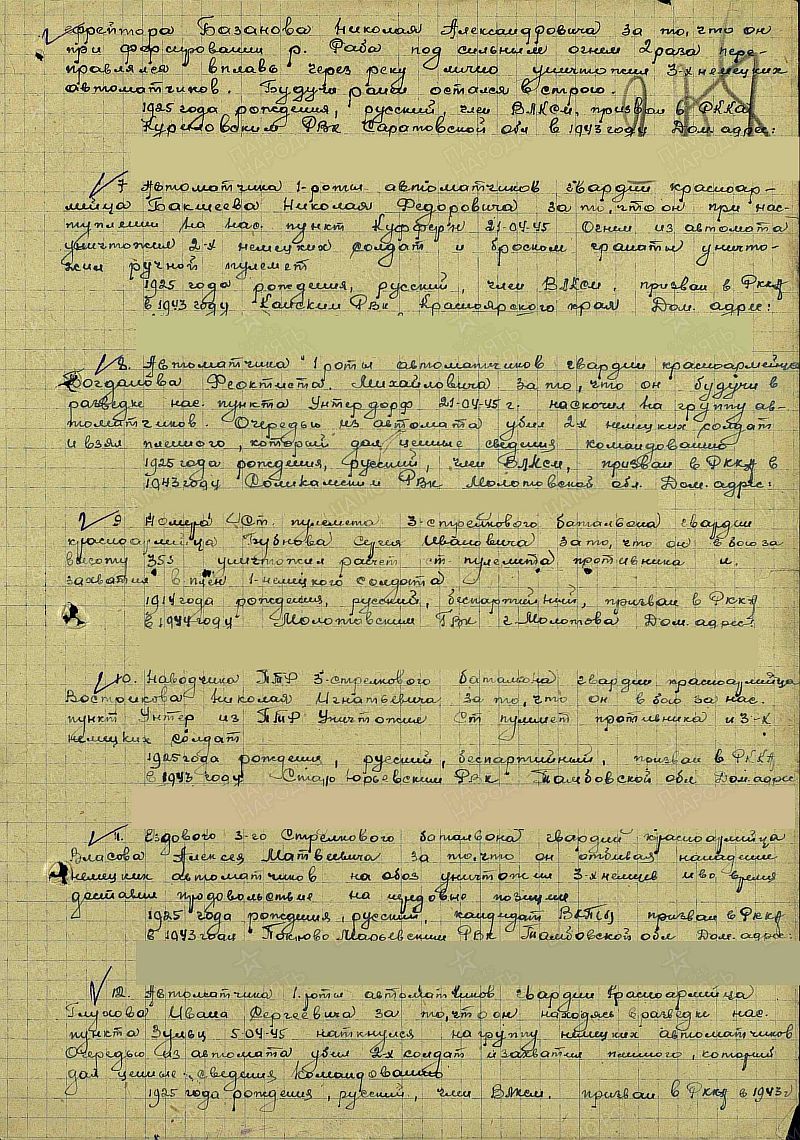 ефрейтора Базанова Николая Александровича за то, что он
при форсировании р. Раба под сильным огнем 2 раза пере-
правлялся вплавь через реку лично уничтожил 3-х немецких
автоматчиков. Будучи ранен остался в строю.
1925 года рождения, русский, член ВЛКСМ, призван в РККА
Куриловским РВК Саратовской обл в 1943 году Дом. адрес:
7 Автоматчика 1-роты автоматчиков гвардии красноар-
мейца Бакшеева Николая Федоровича за то, что он при нас-
туплении на нас. пункт 21-04-45 Огнем из автомата
уничтожил 2-х немецких солдат и броском гранаты уничто-
жил ручной пулемет
1925 года рождения, русский, член ВЛКСМ. призван в РККА
в 1943 году РВК Красноярского края Дом. адрес:
8. Автоматчика 1 роты автоматчиков гвардии красноармейца
Богданова Феоктиста Михайловича за то, что он будучи в
разведке нас. пункта Унтердорф 21-04-45 г. наскочил на группу ав-
томатчиков. Очередью из автомата убил 2х немецких солдат
и взял пленного, который дал ценные сведения командованию
1925 года рождения, русский, член ВЛКСМ, призван в РККА в
1943 году Соликамским РВК Молотовской обл. Дом. адрес:
9 Номера Ст. пулемета 3-стрелкового батальона гвардии
красноармейца Бубнова Сергея Ивановича за то, что он в бою за
высоту 353 уничтожил расчет ст. пулемета противника и.
захватил в плен 1-немецкого солдата
1914 года рождения, русский, беспартийный, призван в РККА
в 1944 году Молотовским ГВК г. Молотова Дом. адрес:
10. Наводчика ПТР 3-стрелкового батальона гвардии красноармейца
Вострикова Николая Игнатьевича за то, что он в бою за нас.
пункт Унтер из ПТР Уничтожил Ст пулемет противника и 3-х
немецких солдат
1925 года рождения, русский, беспартийный, призван в РККА
в 1943 году Старо Юрьевским РВК Тамбовской обл. Дом. адрес
11. Ездового 3-го Стрелкового батальона гвардии красноармейца
Власова Алексея Матвеевича за то, что он отбивая нападение
немецких автоматчиков на обоз уничтожил 3-х немцев и во время
доставил продовольствие на передовые позиции
1925 года рождения, русский, кандидат ВКП(б) призван в РККА
в 1943 году Покрово Марьевским РВК Тамбовской обл Дом. адрес:
12. Автоматчика 1-роты автоматчиков гвардии Красноармейца
Глухова Ивана Сергеевича за то, что он находясь в разведке нас.
пункта Зульц 5-04-45 наткнулся на группу немецких автоматчиков
Очередью из автомата убил 2х солдат и захватил пленного, который
дал ценные сведения командованию
1925 года рождения, русский, член ВЛКСМ. призван в РККА в 1943 г